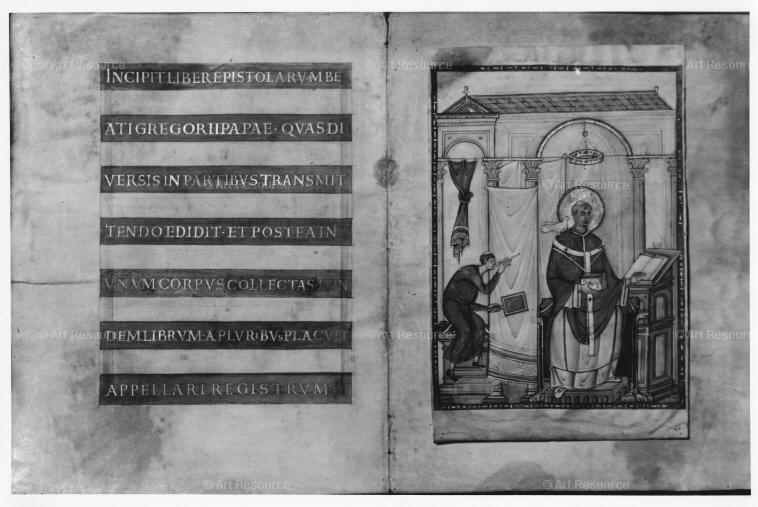 INCIPIT LIBER EPISTOLARVM BE
ATI GREGORII PAPAE · QVAS DI
VERSIS IN PARTIBVS TRANSMIT
TENDO EDIDIT · ET POSTEA IN
VNVM CORPVS COLLECTAS
DEM LIBRVM · A PLVRIBVS PLACVIT
APPELLARI REGISTRVM
© Art Resource
© Art Resource
© Art Resource
© Art Resource
© Art Resource
© Art Resource
© Art Resource
© Art Resource